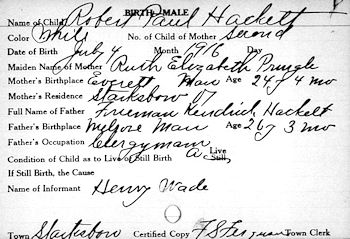 BIRTH—MALE
Name of Child Robert Paul Hackett
Color White No. of Child of Mother Second
Date of Birth July 4 Month 1916 Day
Maiden Name of Mother Ruth Elizabeth Pringle
Mother's Birthplace Everett Mass Age 24 y 4 mo
Mother's Residence Starksboro Vt
Full Name of Father Freeman Kendrick Hackett
Father's Birthplace Melrose Mass Age 26 y 3 mo
Father's Occupation Clergyman
Condition of Child as to Live of Still Birth Live
Still
If Still Birth, the Cause
Name of Informant Henry Wade
Town Starksboro Certified Copy F S Ferguson Town Clerk